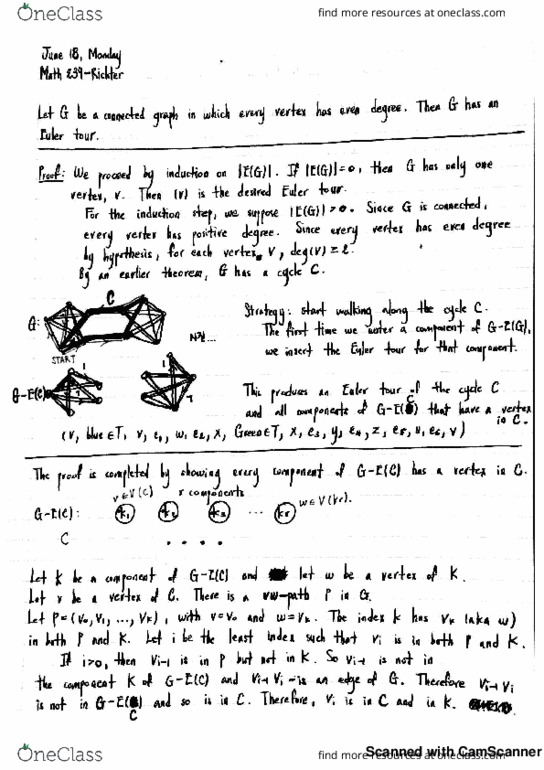 OneClass
find more resources at oneclass.com
June 18, Monday
Math 239-Richter
Let G be a connected graph in which every vertex has even degree. Then G has an
Euler tour.
Proof: We proceed by induction on |E(G)|. If |E(G)|=0, then G has only one
vertex, v. Then (v) is the desired Euler tour.
For the induction step, we suppose |E(G)|>0. Since G is connected,
every vertex has positive degree. Since every vertex has even degree
by hypothesis, for each vertex v, deg(v) ≥ 2.
By an earlier theorem, G has a cycle C.
C
G:
START
Strategy: start walking along the cycle C.
The first time we enter a component of G-E(G),
we insert the Euler tour for that component.
G-E(C)
This produces an Euler tour of the cycle C
and all components of G-E(C) that have a vertex
in C.
(v, blue ET, v, e1, w, e2, x, Green ET, x, e3, y, e4, z, e5, u, e6, v)
The proof is completed by showing every component of G-E(C) has a vertex in C.
v∈V(C) r components w∈V(Kr).
G-E(C): K1 K2 K3 ... Kr
C . . . .
Let K be a component of G-E(C) and let w be a vertex of K.
Let v be a vertex of C. There is a vw-path P in G.
Let P=(v0, v1, ..., vk), with v=v0 and w=vk. The index k has vk (aka w)
in both P and K. Let i be the least index such that vi is in both P and K.
If i>0, then vi-1 is in P but not in K. So vi-1 is not in
the component K of G-E(C) and vi-1 vi is an edge of G. Therefore vi-1 vi
is not in G-E(C) and so is in C. Therefore, vi is in C and in K.
Scanned with CamScanner
OneClass
find more resources at oneclass.com